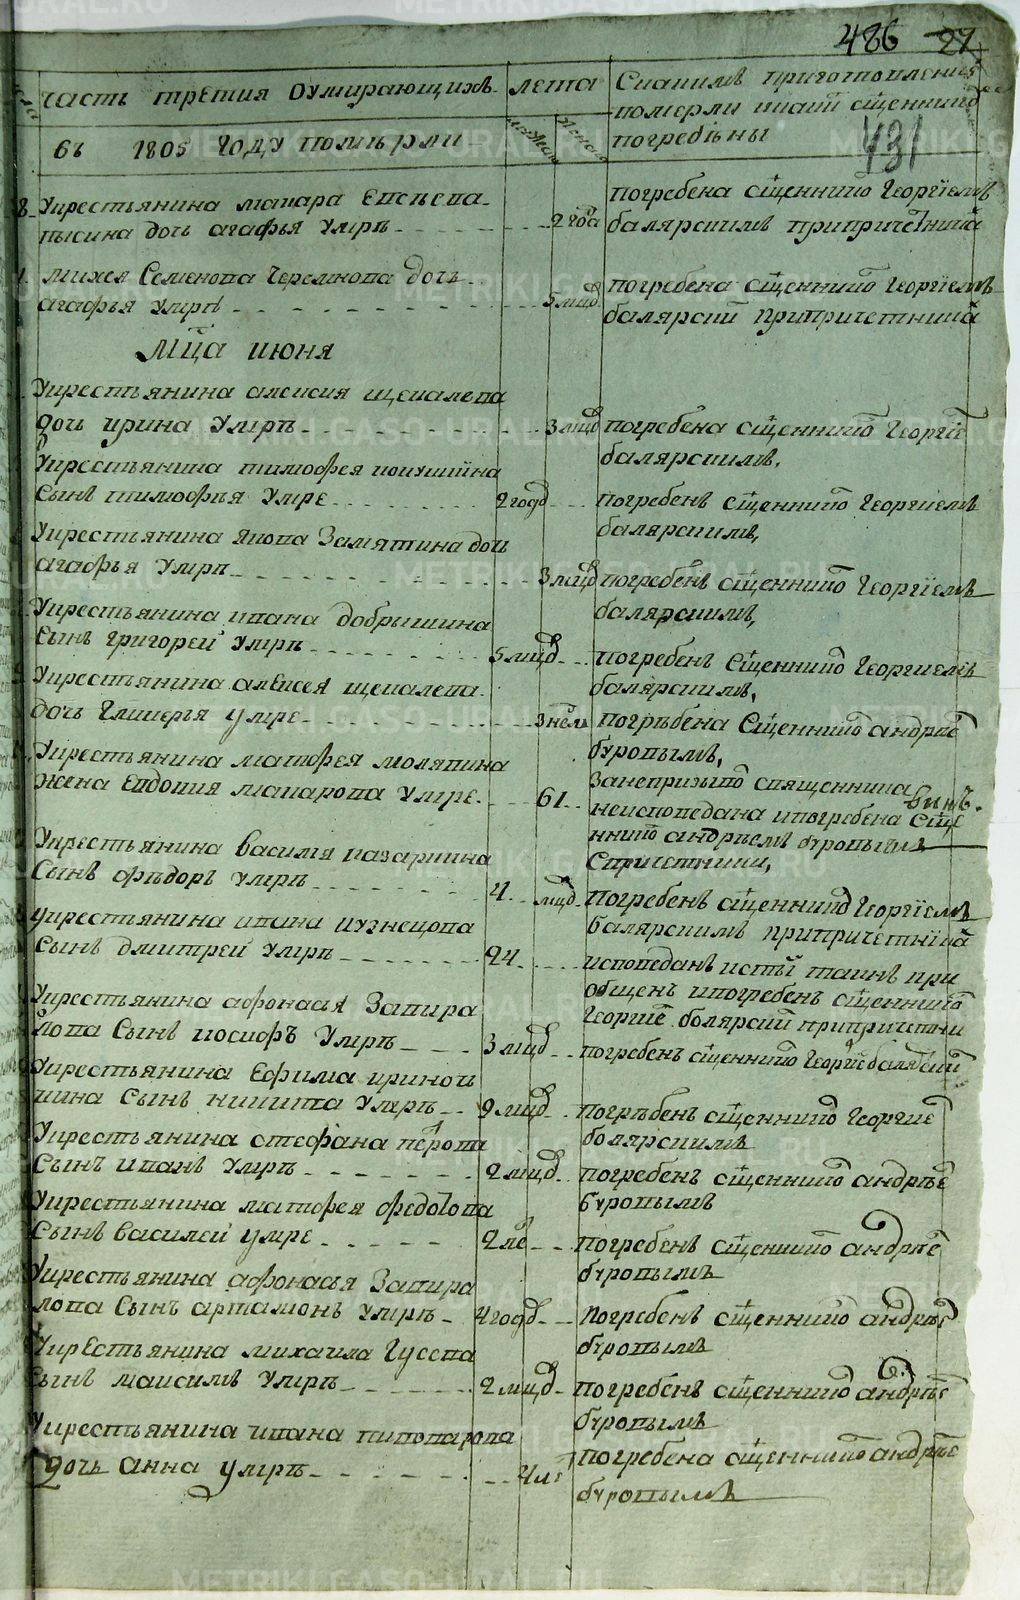 486 27
431
часть третия оумирающихъ
въ 1805 году померли
лета
Скакимъ приготовлениемъ
померли икакимъ сщенникомъ
погребены
8 Укрестьянина макара Евсевева
дочь агафья Умре 2 года
погребена сщенникомъ Георгиемъ
балярскимъ припричетника
михея Семенова Черемнова дочь
агафья Умре 5 мцд
погребена сщенникомъ Георгиемъ
балярским припричетника
Мца июня
Укрестьянина алексия щекалева
дочь ирина Умре 3 мцд
погребена сщенником Георгие
балярскимъ.
Укрестьянина тимофея кокушкина
Сынъ тимофья Умре 2 год
погребенъ сщенником Георгиемъ
балярскимъ,
Укрестьянина якова Замятина дочь
агафья Умре 3 мцд
погребенъ сщенником Георгиемъ
балярскимъ,
Укрестьянина ивана добрышина
Сынъ григорей Умре 5 мцд
погребенъ Сщенником Георгиемъ
балярскимъ,
Укрестьянина алексея щекалева
дочь Гликерья умре 3 нем
погребена Сщенником андрее
буровымъ,
Укрестьянина матфея молявина
жена Евдокия макарова Умре 61
Занепризывом священника
неисповедана ипогребена сще
нником андреемъ буровымъ
Спричетники,
Укрестьянина василия назаркина
Сынъ федоръ умре 4 мцд
погребенъ сщенником Георгиемъ
балярскимъ припричетника
укрестьянина ивана кузнецова
Сынъ дмитрей Умре 24
исповеданъ исты таинъ при
общенъ ипогребенъ сщенником
Георгие болярски припричетни
Укрестьянина афонасья Запира
лова Сынъ иосифъ Умре 3 мцд
погребенъ сщенником Георгие балярски
Укрестьянина Ефима криноч
кина Сынъ никита Умре 9 мцд
погребенъ сщенником Георгие
болярскимъ
Укрестьянина стефана перова
Сынъ иванъ Умре 2 мцд
погребенъ сщенником андрее
буровымъ
Укрестьянина матфея федотова
Сынъ василей умре 2 ле
погребенъ сщенником андрее
буровымъ
Укрестьянина афонасья Запира
лова Сынъ артамонъ умре 4 год
погребенъ сщенником андрее
буровымъ
Укрестьянина михаила Гусева
Сынъ максимъ Умре 2 мцд
погребенъ сщенником андрее
буровымъ
Укрестьянина ивана пивоварова
дочь анна умре 4 ле
погребена сщенником андрее
буровымъ
METRIKI.GASO-URAL.RU